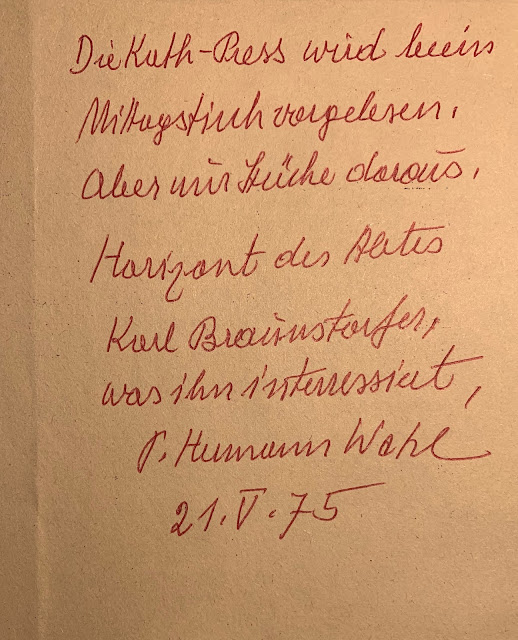 Die Kath-Press wird beim
Mittagstisch vorgelesen.
Aber nur Stücke daraus.
Horizont des Abtes
Karl Braunstorfer,
was ihn interressiert,
P. Hermann Wahl
21. V. 75